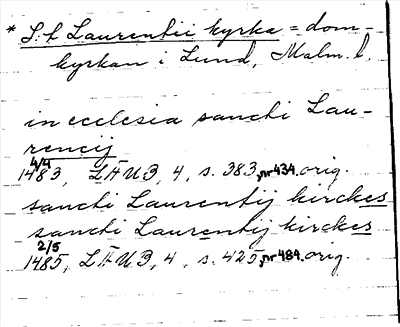 * S:t Laurentii kyrka = dom-
kyrkan i Lund, Malm. l.
in ecclesia sancti Lau-
rencij
4/4
1483, LÄUB, 4, s. 383, nr 434. orig.
sancti Laurentij kirckes
sancti Laurentij kirckes
2/5
1485, LÄUB, 4, s. 425, nr 484. orig.